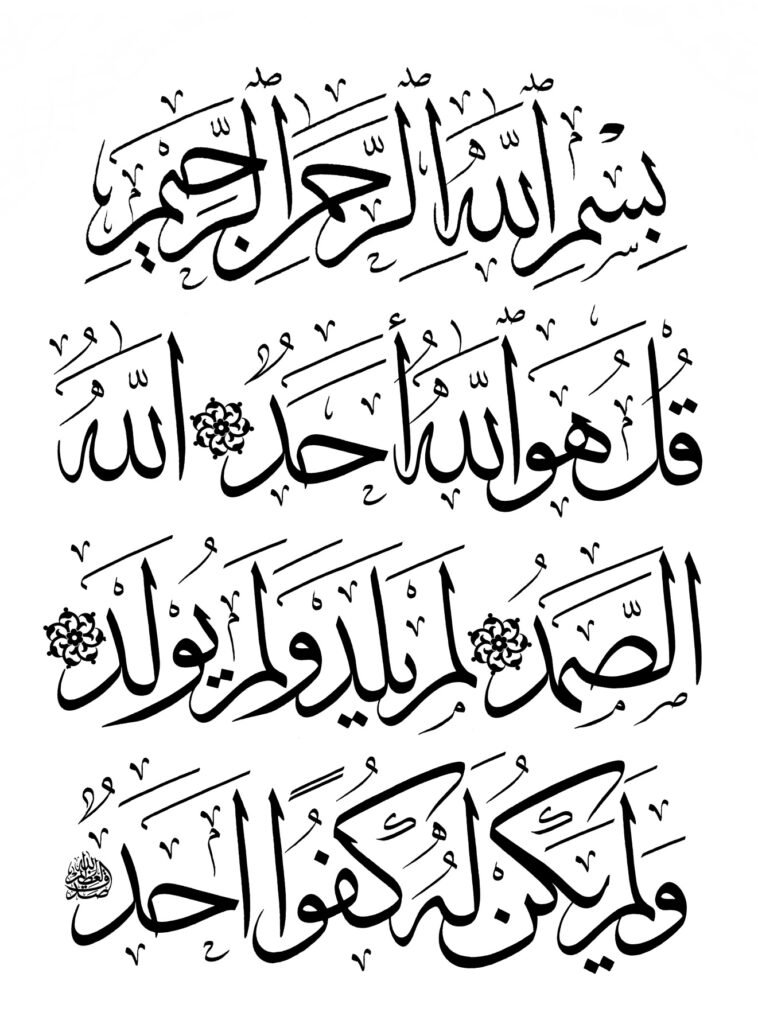 بِسْمِ ٱللَّهِ ٱلرَّحْمَٰنِ ٱلرَّحِيمِ
قُلْ هُوَ ٱللَّهُ أَحَدٌ ۝ ٱللَّهُ
ٱلصَّمَدُ ۝ لَمْ يَلِدْ وَلَمْ يُولَدْ ۝
وَلَمْ يَكُنْ لَهُ كُفُوًا أَحَدٌ
صدق الله العظيم